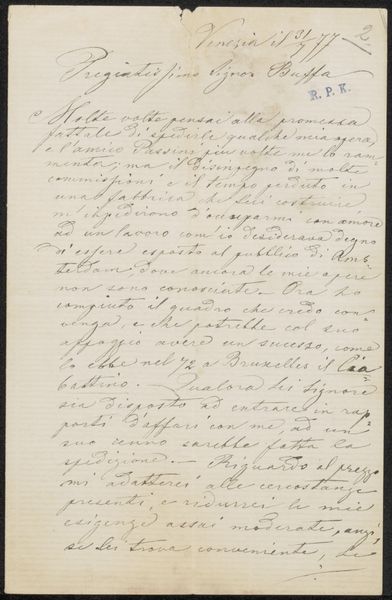 2.
Venezia il 31/7 77
Pregiatissimo Signor Buffa
R. P. K.
Molte volte pensai alla promessa
fattale di spedirle qualche mia opera,
e l'amico Passini più volte me lo ram-
mentò; ma il disimpegno di molte
commissioni e il tempo perduto in
una fabbrica che feci costruire
m'impedirono d'occuparmi con amore
ad un lavoro com'io desiderava degno
di essere esposto al pubblico di Am-
sterdam dove ancora le mie opere
non sono conosciute. Ora ho
compiuto il quadro che credo con-
venga, e che potrebbe col suo
appoggio avere un sucesso, come
lo ebbe nel 72 a Bruxelles il Cia-
battino. Qualora Lei Signore
sia disposto ad entrare in rap-
porti d'affari con me, ad un
suo cenno sarebbe fatta la
spedizione. - Riguardo al prezzo
mi adatterei alle circostanze
presenti, e ridurrei le mie
esigenze assai moderate, anzi
se lei trova conveniente, Le